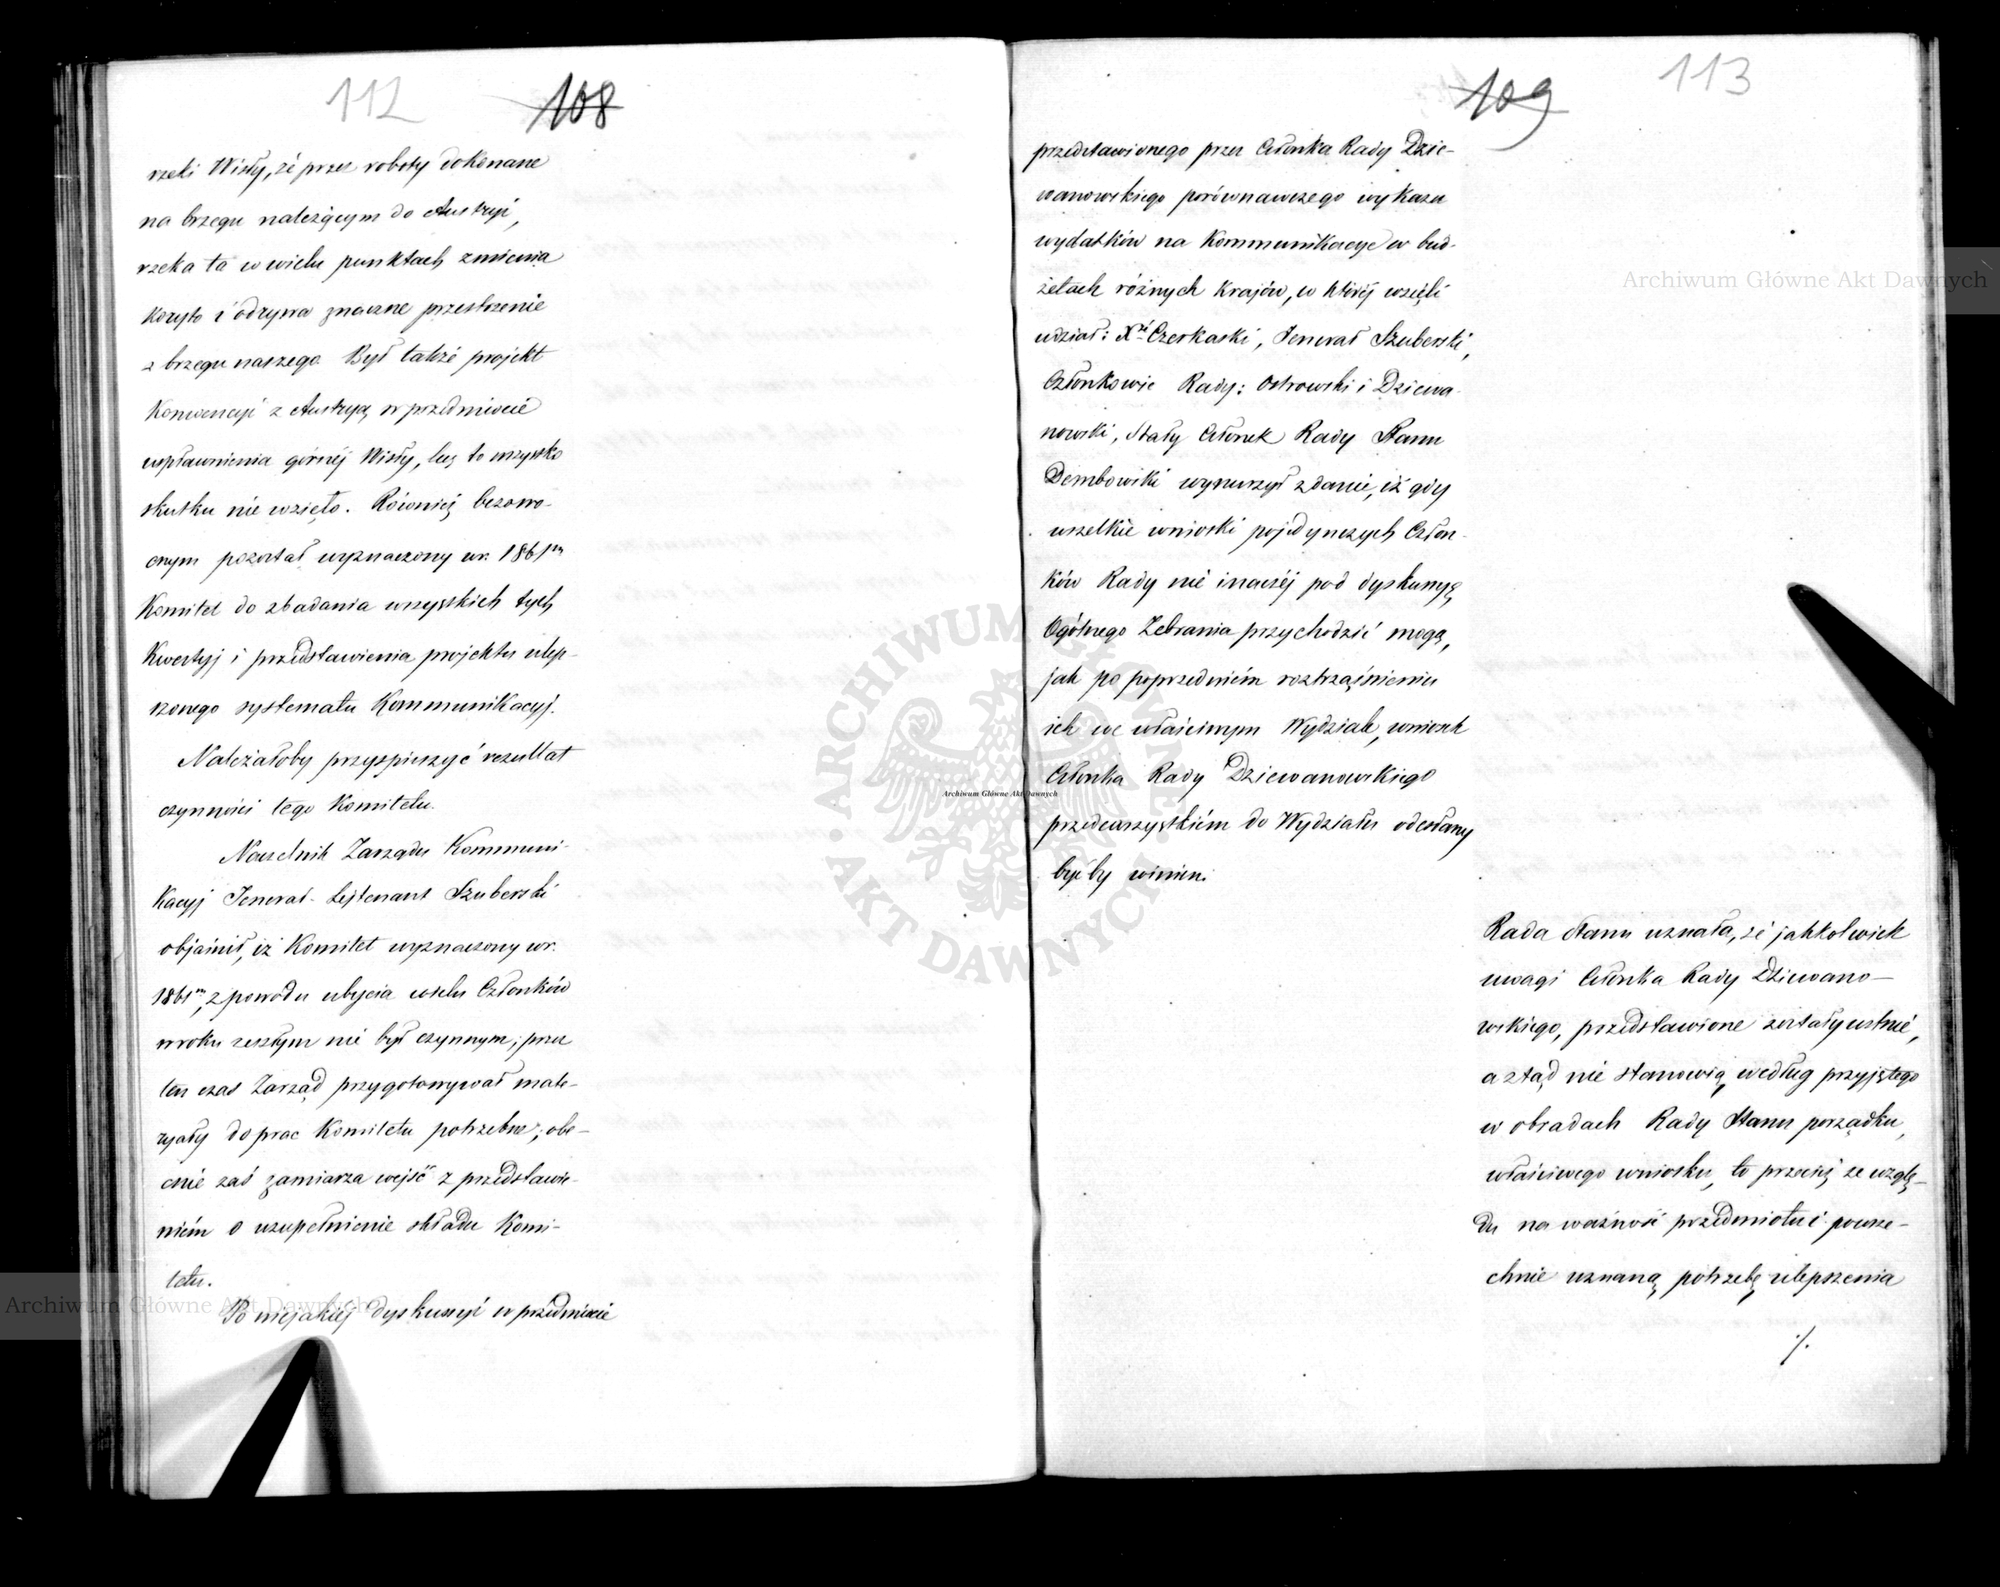 112
108
rzeki Wisły, że przez roboty dokonane
na brzegu należącym do Austryi,
rzeka ta w wielu punktach zmienia
koryto i odrywa znaczne przestrzenie
z brzegu naszego. Był także projekt
Konwencyi z Austryą w przedmiocie
uspławnienia górnéj Wisły, lecz to wszystko
skutku nie wzięło. Również bezowo-
cnym pozostał wyznaczony w r. 1861m
Komitet do zbadania wszystkich tych
Kwestyj i przedstawienia projektu ulep-
szonego systematu Kommunikacyj.
Należałoby przyspieszyć rezultat
czynności tego Komitetu.
Naczelnik Zarządu Kommuni-
kacyj Jenerał-Lejtenant Szuberski
objaśnił, iż Komitet wyznaczony w r.
1861m, z powodu ubycia wielu Członków
w roku zeszłym nie był czynnym; przez
ten czas Zarząd przygotowywał mate-
ryały do prac Komitetu potrzebne; obe-
cnie zaś zamierza wejść z przedstawie-
niém o uzupełnienie składu Komi-
tetu.
Po niejakiéj dyskussyi w przedmiocie
109
113
przedstawionego przez Członka Rady Dzie-
wanowskiego porównawczego wykazu
wydatków na Kommunikacye w bud-
żetach różnych krajów, w któréj wzięli
udział: Xże Czerkaski, Jenerał Szuberski,
Członkowie Rady: Ostrowski i Dziewa-
nowski, Stały Członek Rady Stanu
Dembowski wynurzył zdanie, iż gdy
wszelkie wnioski pojedynczych Człon-
ków Rady nie inaczéj pod dyskussyę
Ogólnego Zebrania przychodzić mogą,
jak po poprzedniém roztrząśnieniu
ich we właściwym Wydziale, wniosek
Członka Rady Dziewanowskiego
przedewszystkiém do Wydziału odesłany
byćby winien.
Rada Stanu uznała, że jakkolwiek
uwagi Członka Rady Dziewano-
wskiego, przedstawione zostały ustnie,
a ztąd nie stanowią, według przyjętego
w obradach Rady Stanu porządku,
właściwego wniosku, to przecież ze wzglę-
du na ważność przedmiotu i powsze-
chnie uznaną potrzebę ulepszenia
./.
Archiwum Główne Akt Dawnych
Archiwum Główne Akt Dawnych
Archiwum Główne Akt Dawnych
ARCHIWUM GŁÓWNE AKT DAWNYCH